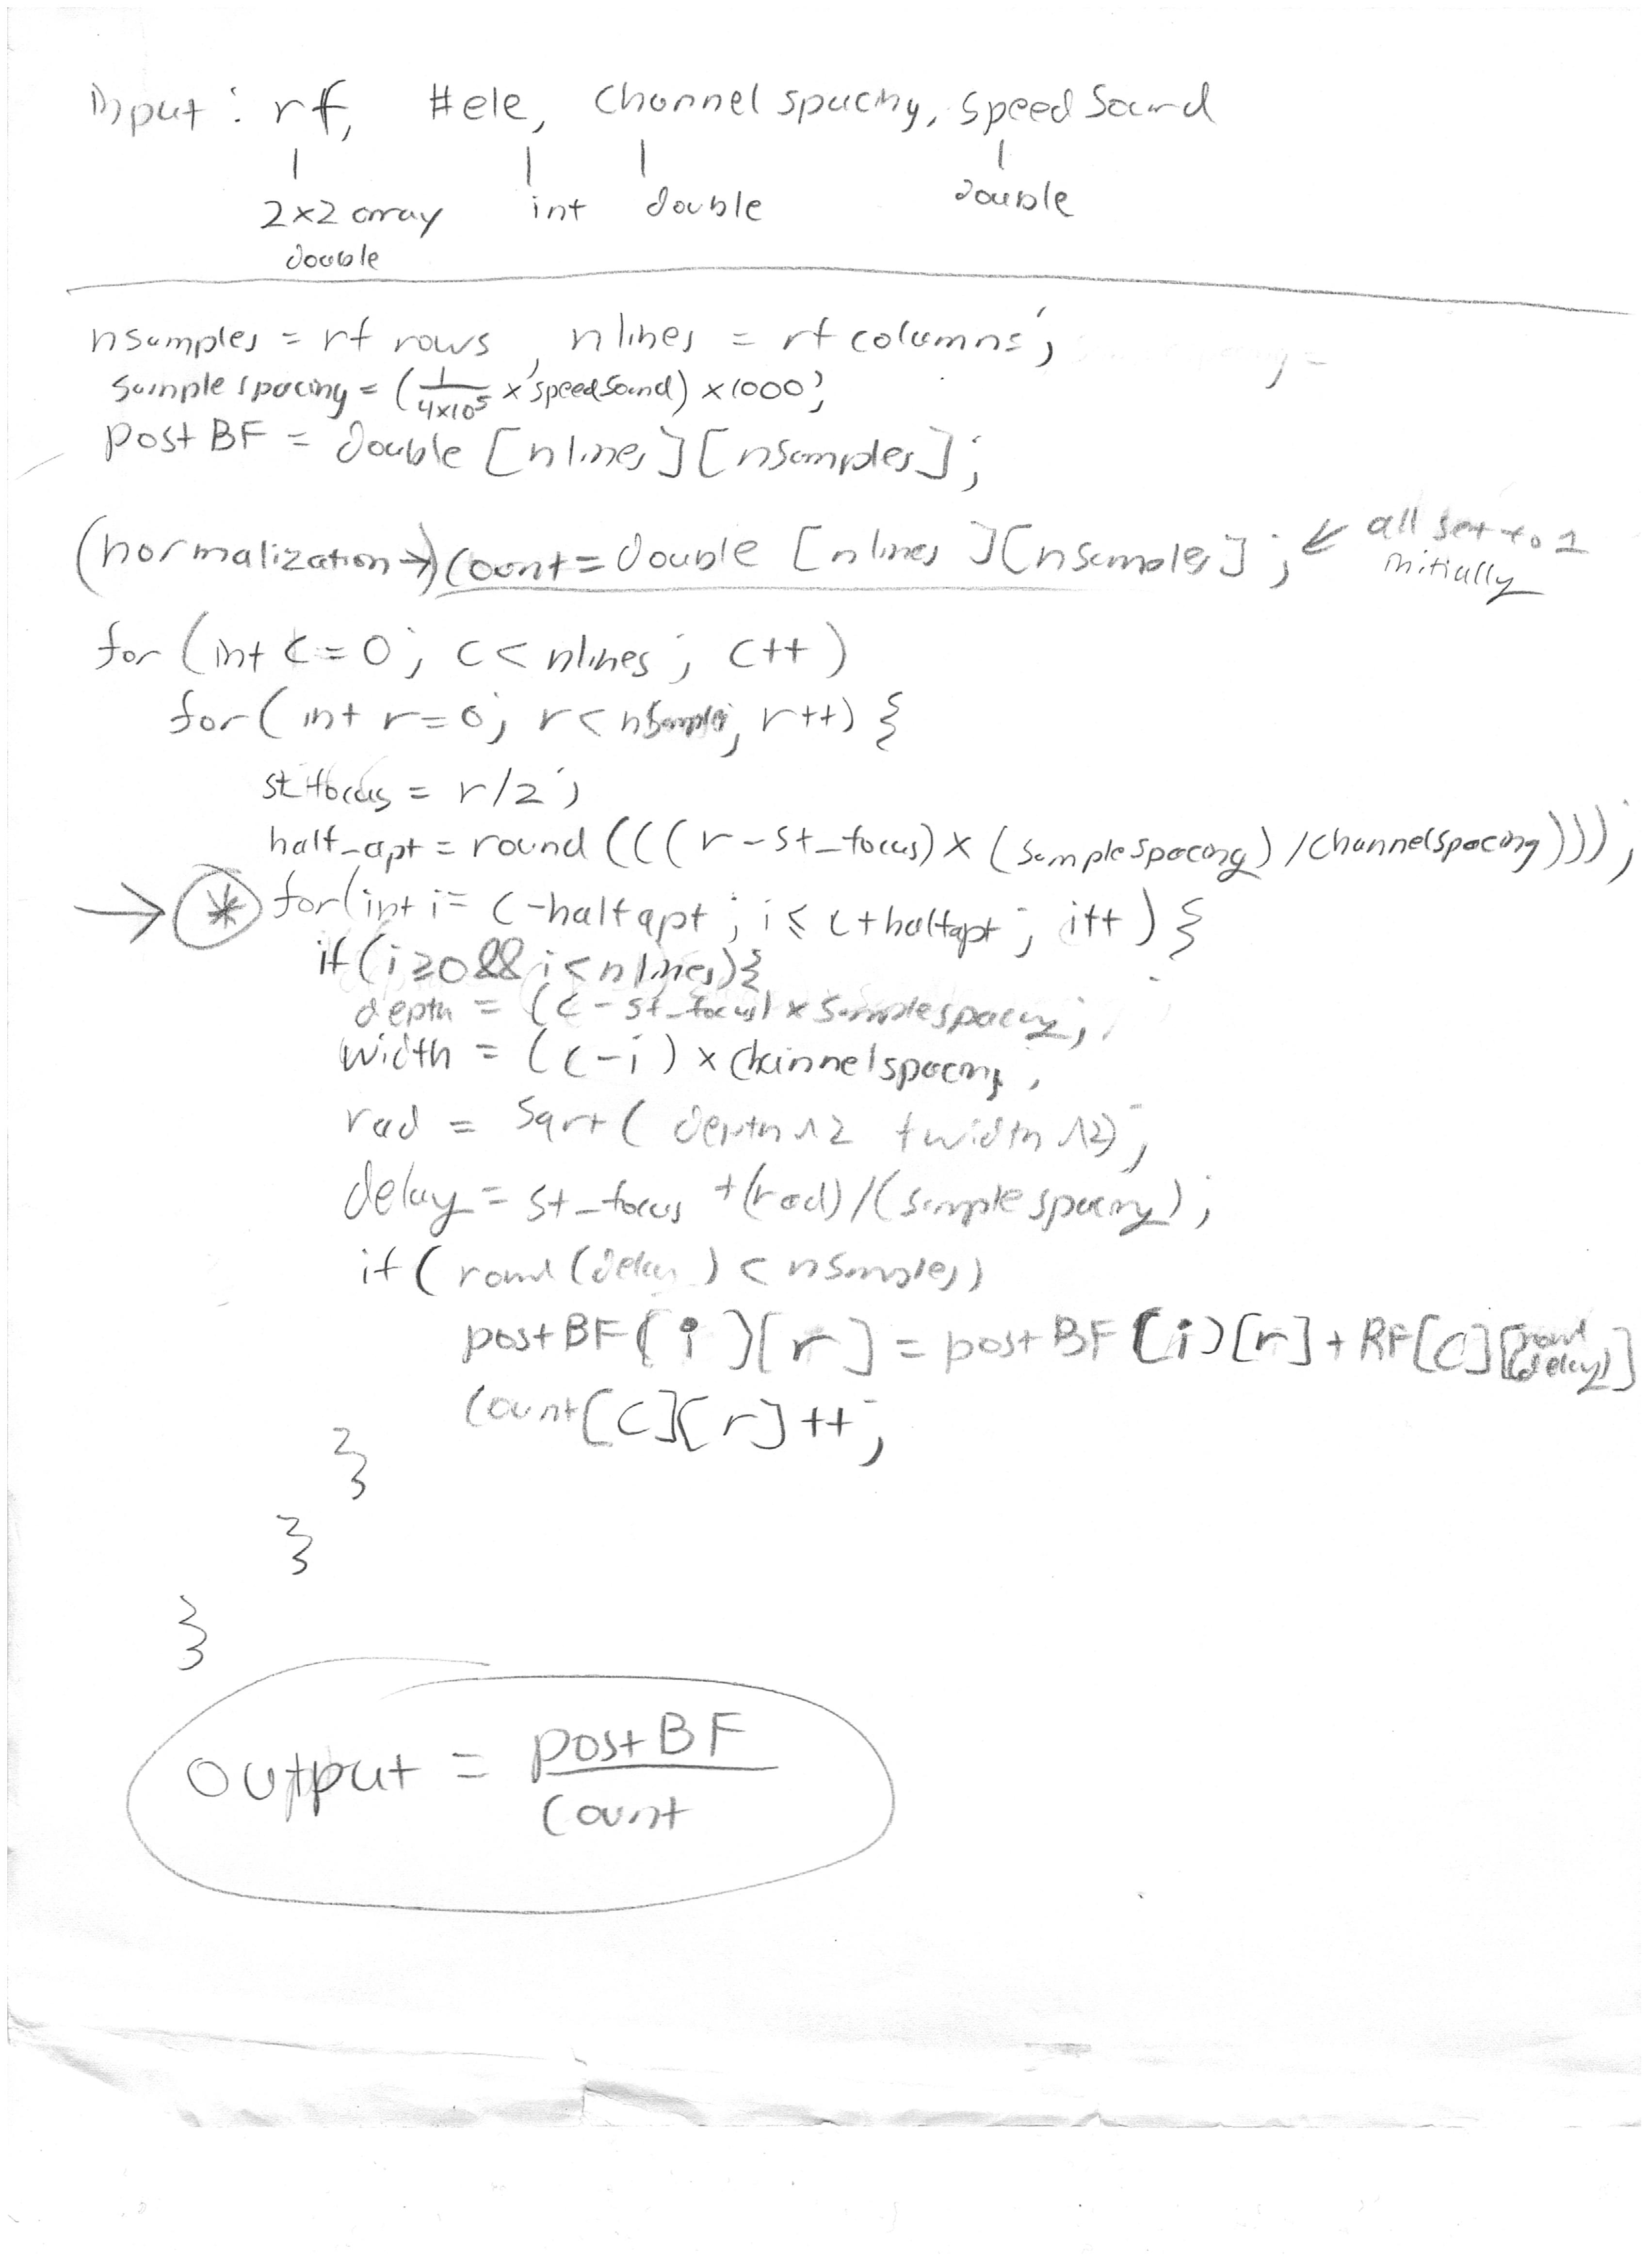 Input : rf, #ele, Channel spacing, Speed Sound
2x2 array int double double
double
nsamples = rf rows , nlines = rf columns ;
Sample spacing = (1/4x10^5 x speedSound) x 1000 ;
post BF = double [nlines] [nSamples] ;
(normalization →) Count = double [nlines] [nSamples] ; ↙ all set to 1
initially
for (int c = 0 ; c < nlines ; c++)
for ( int r = 0 ; r < nSamples ; r++) {
st_focus = r/2 ;
half_apt = round (((r - st_focus) x (samplespacing) / channelspacing))) ;
→ * for (int i = c - halfapt ; i ≤ c + halfapt ; i++ ) {
if ( i ≥ 0 && i < nlines) {
depth = (c - st_focus) x samplespacing ;
width = (c - i ) x channelspacing ;
rad = sqrt ( depth ^2 + width ^2) ;
delay = st_focus + (rad) / (sample spacing) ;
if ( round (delay ) < nSamples)
postBF [ i ] [ r ] = postBF [i] [r] + RF[C] [round (delay)]
count [C] [r] ++ ;
}
}
}
output = post BF
Count